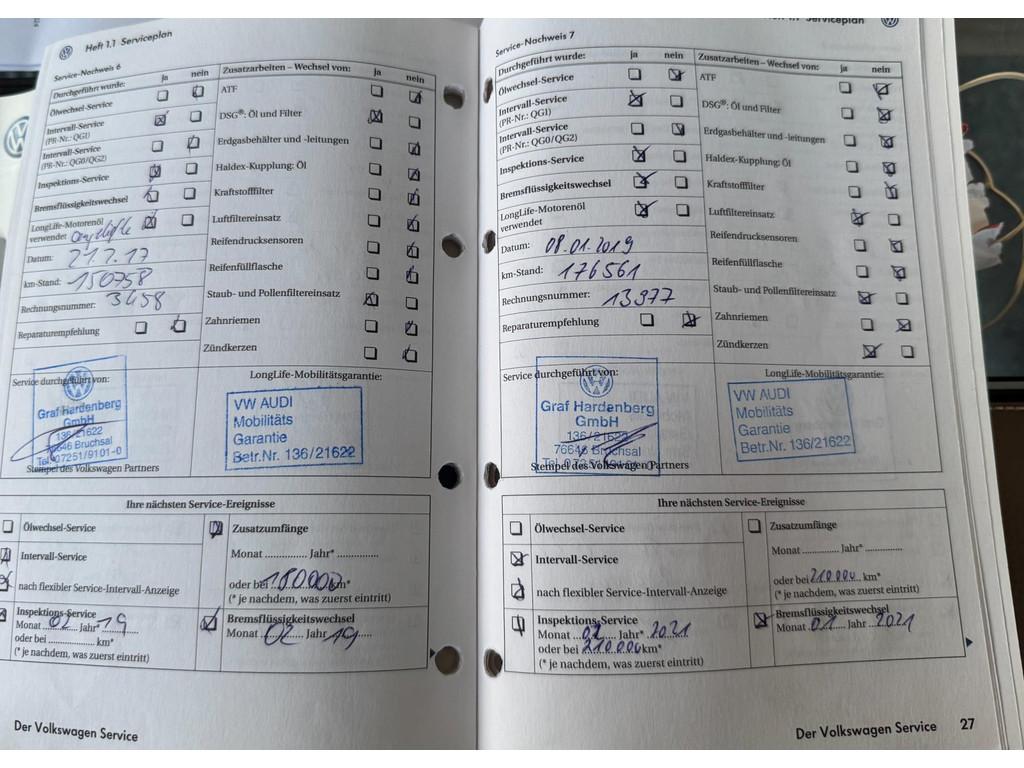 Heft 1.1 Serviceplan
Service-Nachweis 6
Durchgeführt wurde: ja nein
Ölwechsel-Service
Intervall-Service
(PR-Nr.: QG1)
Intervall-Service
(PR-Nr.: QG0/QG2)
Inspektions-Service
Bremsflüssigkeitswechsel
LongLife-Motorenöl
verwendet
Datum: 21.2.17
km-Stand: 150758
Rechnungsnummer: 3458
Reparaturempfehlung
Zusatzarbeiten – Wechsel von: ja nein
ATF
DSG®: Öl und Filter
Erdgasbehälter und -leitungen
Haldex-Kupplung: Öl
Kraftstofffilter
Luftfiltereinsatz
Reifendrucksensoren
Reifenfüllflasche
Staub- und Pollenfiltereinsatz
Zahnriemen
Zündkerzen
Service durchgeführt von:
Graf Hardenberg
GmbH
136/21622
76646 Bruchsal
Tel. 07251/9101-0
Stempel des Volkswagen Partners
LongLife-Mobilitätsgarantie:
VW AUDI
Mobilitäts
Garantie
Betr.Nr. 136/21622
Ihre nächsten Service-Ereignisse
Ölwechsel-Service
Intervall-Service
nach flexibler Service-Intervall-Anzeige
Inspektions-Service
Monat 02 Jahr* 19
oder bei ................ km*
(* je nachdem, was zuerst eintritt)
Zusatzumfänge
Monat ............. Jahr* .............
oder bei 180.000 km*
(* je nachdem, was zuerst eintritt)
Bremsflüssigkeitswechsel
Monat 02 Jahr 19
Der Volkswagen Service
Heft 1.1 Serviceplan
Service-Nachweis 7
Durchgeführt wurde: ja nein
Ölwechsel-Service
Intervall-Service
(PR-Nr.: QG1)
Intervall-Service
(PR-Nr.: QG0/QG2)
Inspektions-Service
Bremsflüssigkeitswechsel
LongLife-Motorenöl
verwendet
Datum: 08.01.2019
km-Stand: 176561
Rechnungsnummer: 13977
Reparaturempfehlung
Zusatzarbeiten – Wechsel von: ja nein
ATF
DSG®: Öl und Filter
Erdgasbehälter und -leitungen
Haldex-Kupplung: Öl
Kraftstofffilter
Luftfiltereinsatz
Reifendrucksensoren
Reifenfüllflasche
Staub- und Pollenfiltereinsatz
Zahnriemen
Zündkerzen
Service durchgeführt von:
Graf Hardenberg
GmbH
136/21622
76646 Bruchsal
Stempel des Volkswagen Partners
LongLife-Mobilitätsgarantie:
VW AUDI
Mobilitäts
Garantie
Betr.Nr. 136/21622
Ihre nächsten Service-Ereignisse
Ölwechsel-Service
Intervall-Service
nach flexibler Service-Intervall-Anzeige
Inspektions-Service
Monat 01 Jahr* 2021
oder bei 210.000 km*
(* je nachdem, was zuerst eintritt)
Zusatzumfänge
Monat ............. Jahr* .............
oder bei 210.000 km*
(* je nachdem, was zuerst eintritt)
Bremsflüssigkeitswechsel
Monat 01 Jahr 2021
Der Volkswagen Service 27